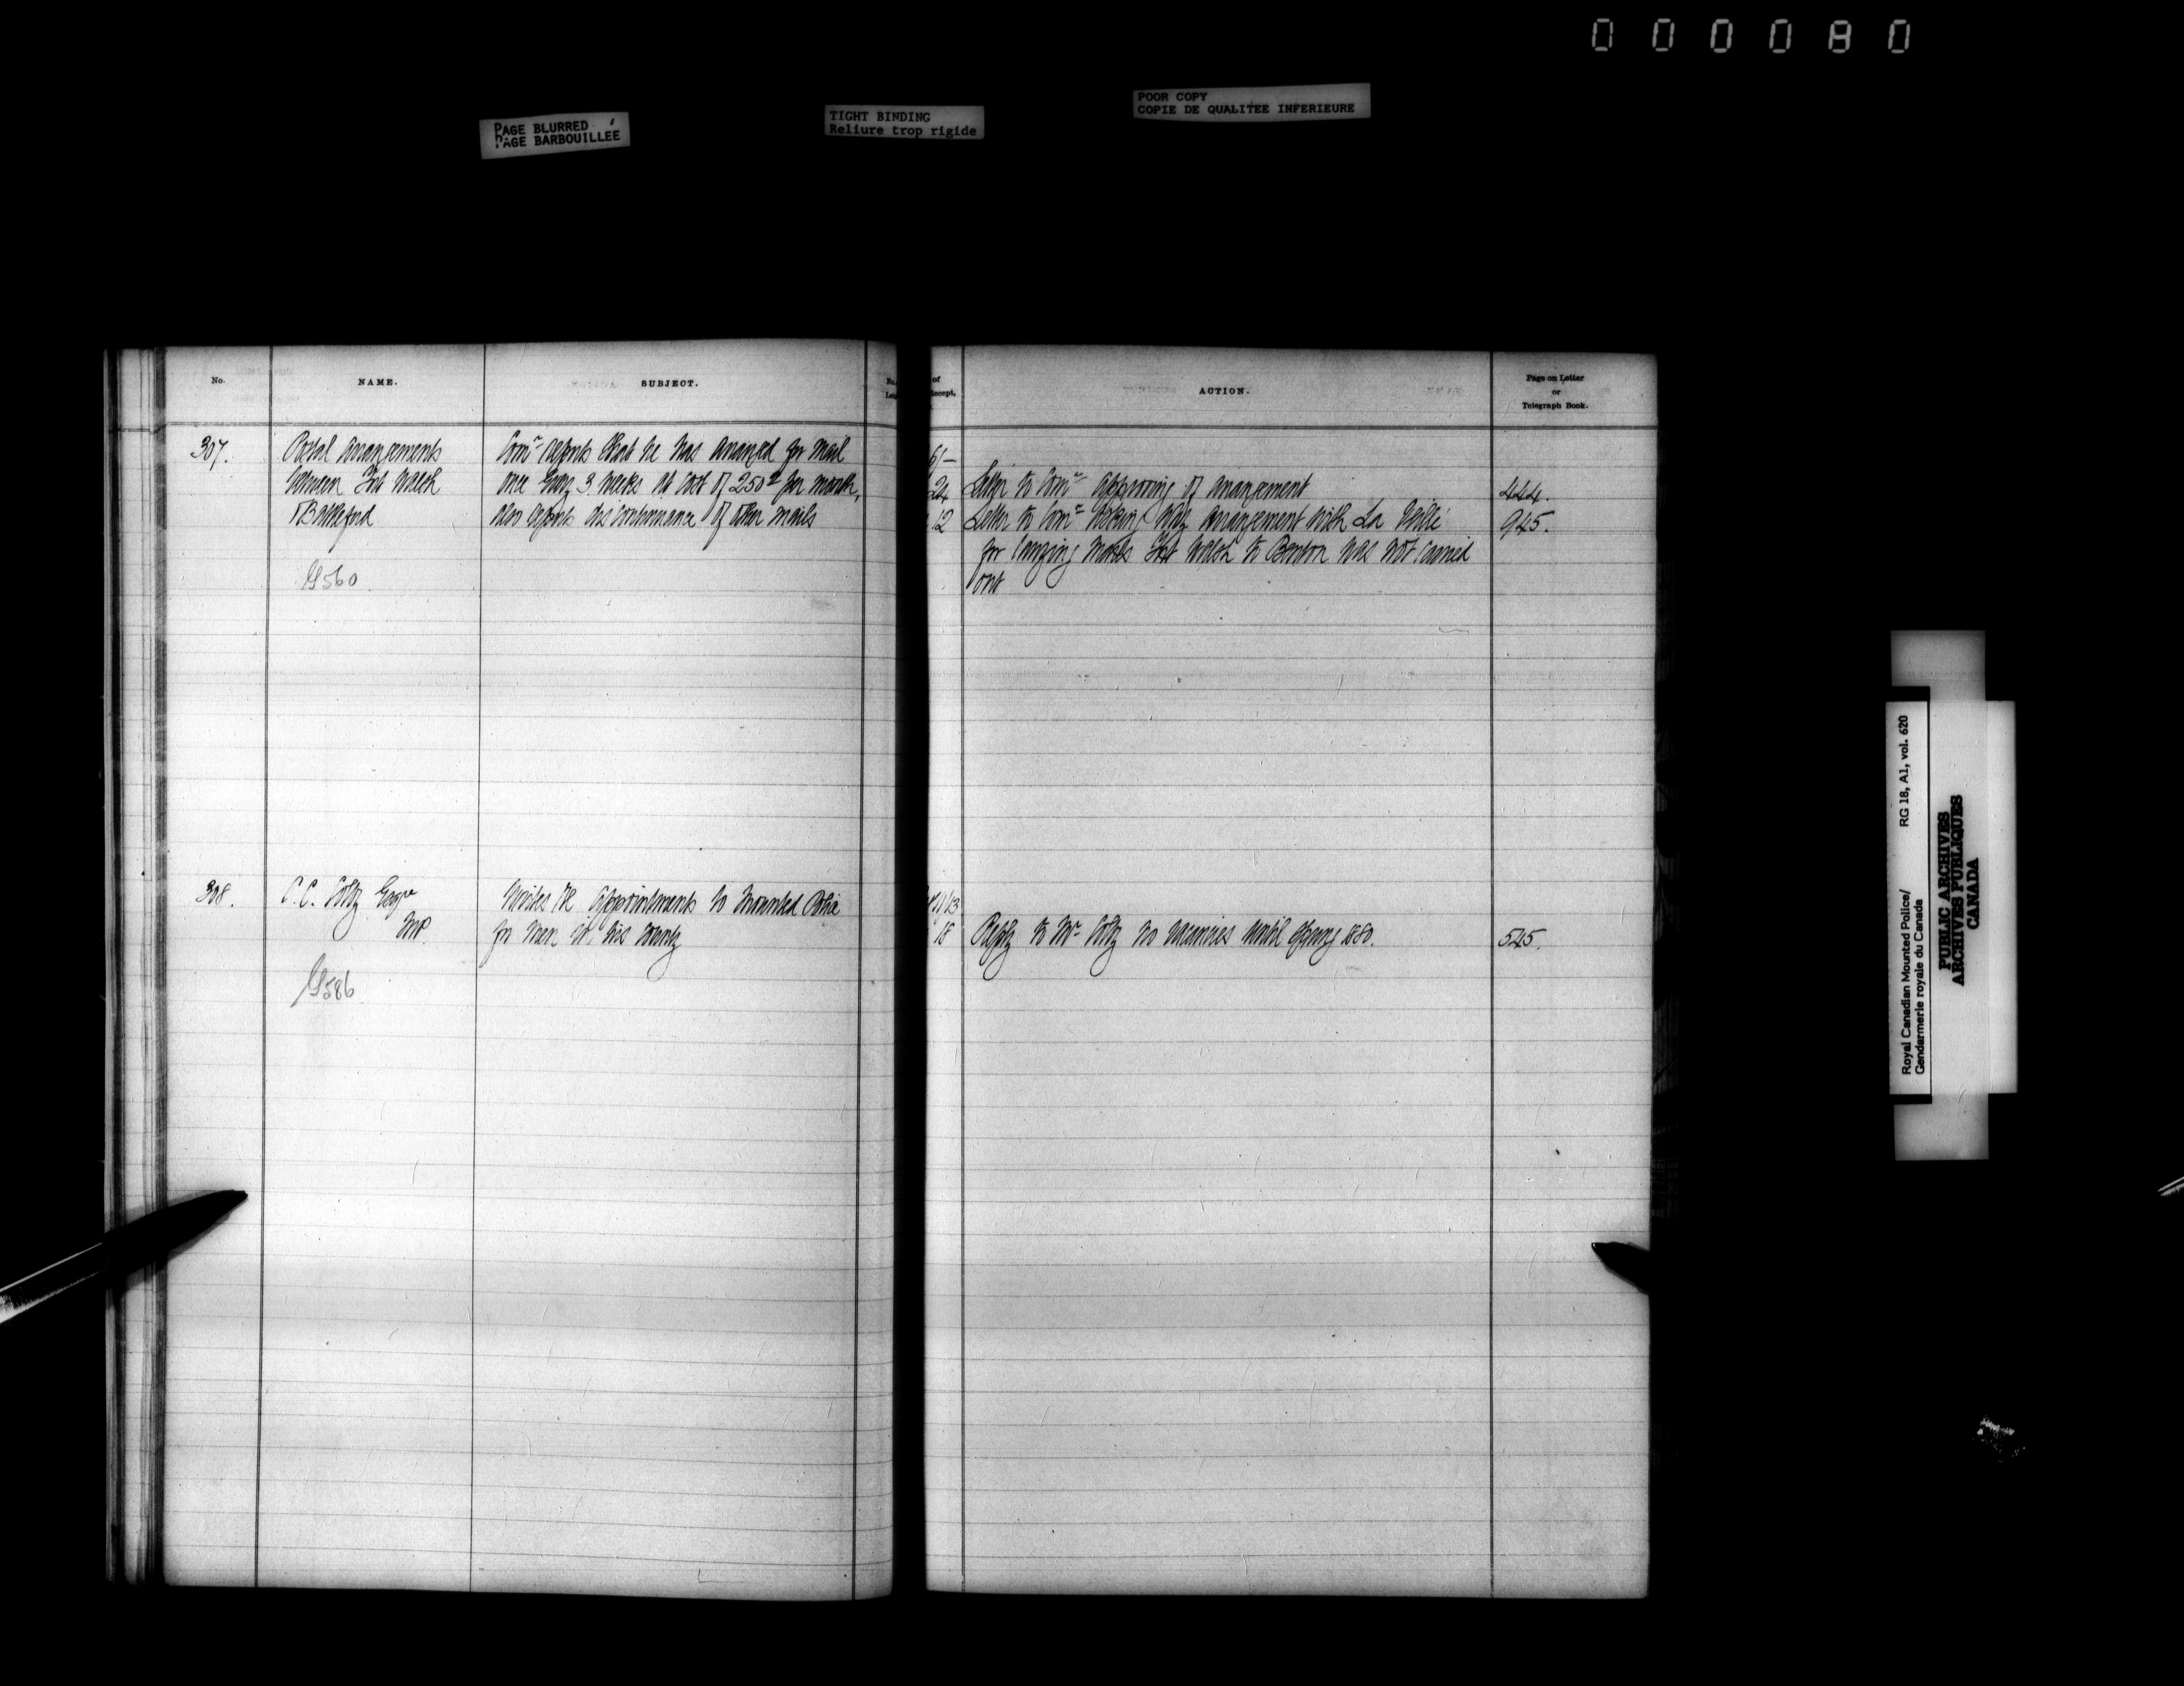 000080
PAGE BLURRED
PAGE BARBOUILLÉE
TIGHT BINDING
Reliure trop rigide
POOR COPY
COPIE DE QUALITEE INFERIEURE
No.
NAME.
SUBJECT.
No.
307.
Postal Arrangements
between Fort Walsh
& Battleford
G560
Comr reports that he has arranged for Mail
once every 3 weeks at cost of 250$ per month,
also reports discontinuance of other mails
308.
C. C. Colby Esqre
MP.
G586
Writes re appointments to Mounted Police
for men in his County
of
Receipt,
ACTION.
Page on Letter
or
Telegraph Book.
24 Letter to Comr approving of arrangement 444.
12 Letter to Comr asking why arrangement with La
for carrying mails Fort Walsh to Benton was not carried
out
945.
13
18 Reply to Mr Colby no vacancies until Spring 1880. 545.
Royal Canadian Mounted Police/ RG 18, A1, vol. 620
Gendarmerie royale du Canada
PUBLIC ARCHIVES
ARCHIVES PUBLIQUES
CANADA